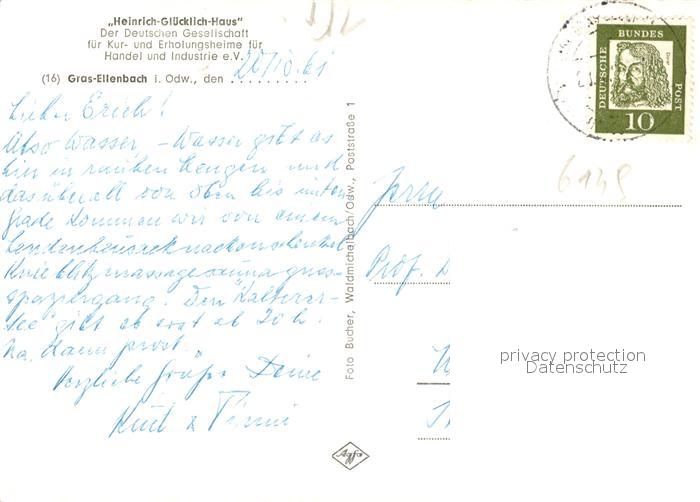 „Heinrich-Glücklich-Haus"
Der Deutschen Gesellschaft
für Kur- und Erholungsheime für
Handel und Industrie e.V.
(16) Gras-Ellenbach i. Odw., den 20/10.61
Lieber Erich!
Also Wasser – Wasser gibt es
hier in rauhen Mengen und
das überall von oben bis unten
grade kommen wir von einem
Lendenheusack nackenschenkel
Knieblitzmassagesaunaguss-
spaziergang. Den "Kalterer-
see" gibt es erst ab 20 h.
Na, dann prost.
Herzliche Grüße Deine
Kurt &
Foto Bucher, Waldmichelbach/Odw., Poststraße 1
DEUTSCHE BUNDES POST
Dürer
10
6145
Herrn
Prof. D
privacy protection
Datenschutz
Agfa